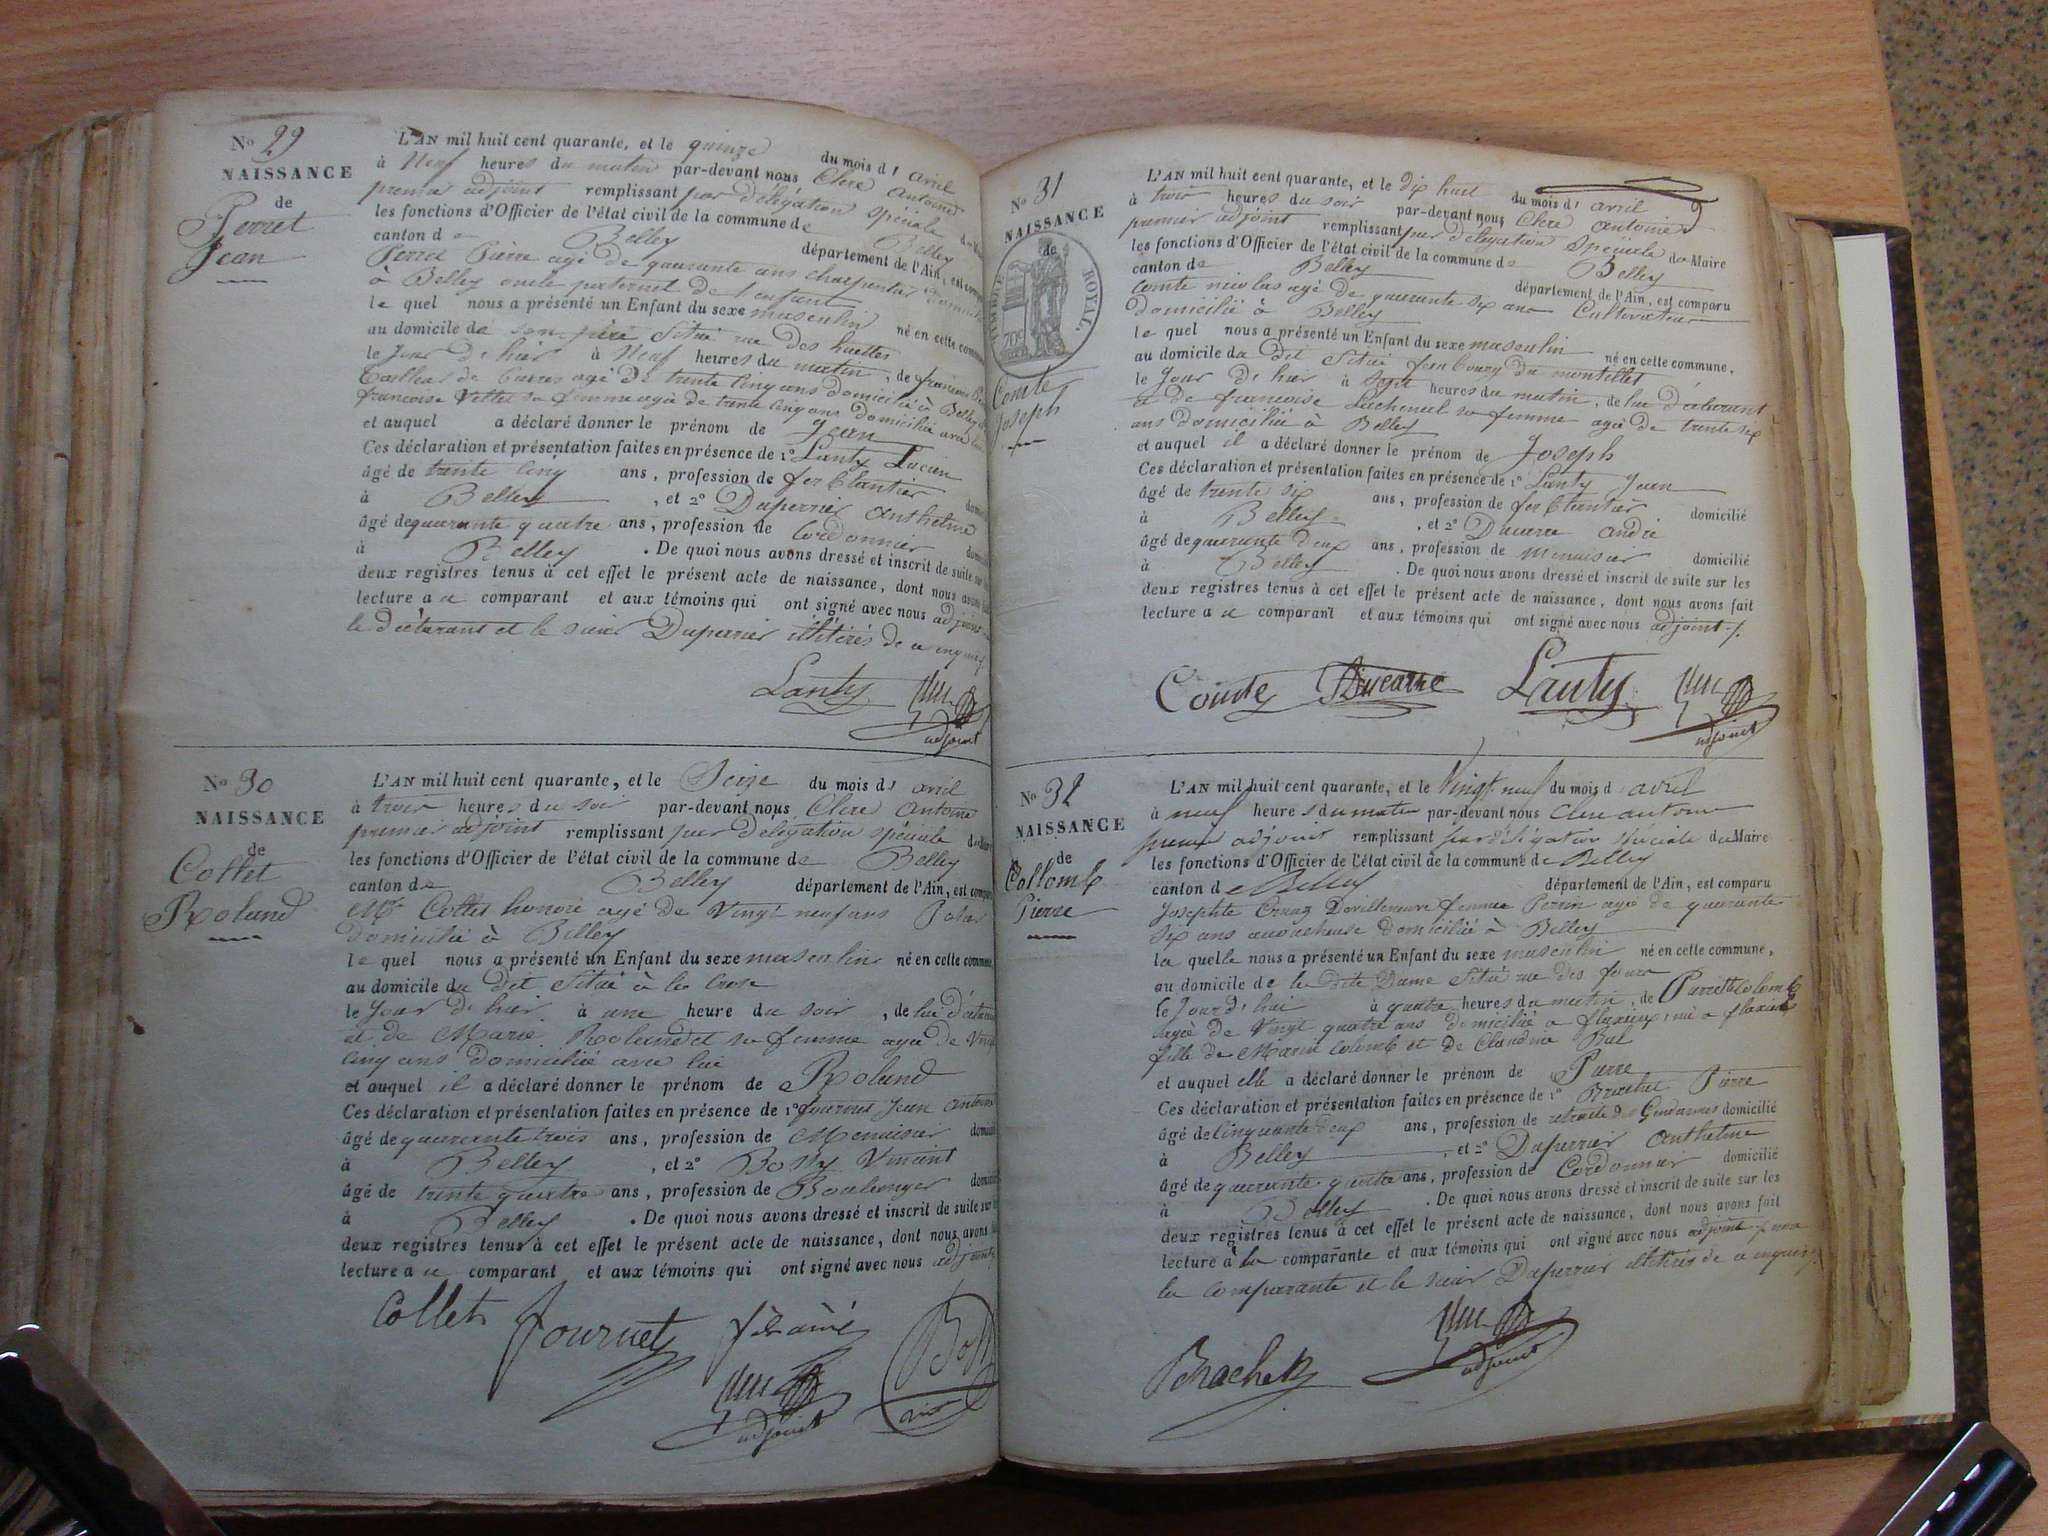 N° 29
NAISSANCE
de
Perret
Jean
L'AN mil huit cent quarante, et le quinze du mois d' avril
à Neuf heures du matin par-devant nous Clerc Antoine
premier adjoint remplissant par délégation spéciale du
les fonctions d'Officier de l'état civil de la commune de Belley
canton de Belley département de l'Ain, est
Perret Pierre agé de quarante ans charpentier
à Belley oncle paternel de l'enfant
le quel nous a présenté un Enfant du sexe masculin né en cette
au domicile de son père Situé rue des huettes
le Jour d'hier à Neuf heures du matin, de
agé de trente Cinq ans domicilié à Belley
françoise sa femme agée de trente cinq ans domiciliée avec
et auquel a déclaré donner le prénom de Jean
Ces déclaration et présentation faites en présence de 1° Lanty Lucien
âgé de trente Cinq ans, profession de ferblantier
à Belley, et 2° Duperrier anthelme
âgé de quarante quatre ans, profession de Cordonnier
à Belley. De quoi nous avons dressé et inscrit de suite sur
deux registres tenus à cet effet le présent acte de naissance, dont nous avons
lecture a ce comparant et aux témoins qui ont signé avec nous adjoint
le déclarant et le sieur Duperrier illitérés de ce enquis
Lanty
adjoint
N° 30
NAISSANCE
de
Collet
Roland
L'AN mil huit cent quarante, et le Seize du mois d' avril
à trois heures du soir par-devant nous Clerc Antoine
premier adjoint remplissant par délégation spéciale du
les fonctions d'Officier de l'état civil de la commune de Belley
canton de Belley département de l'Ain, est
Mr Collet honoré agé de Vingt neuf ans
domicilié à Belley
le quel nous a présenté un Enfant du sexe masculin né en cette commune
au domicile du dit Situé à la
le Jour d'hier à une heure du soir, de lui
et de Marie Roland et sa femme agée de Vingt
Cinq ans domiciliée avec lui
et auquel il a déclaré donner le prénom de Roland
Ces déclaration et présentation faites en présence de 1° fournet Jean Antoine
âgé de quarante trois ans, profession de Menuisier
à Belley, et 2° Bossy Vincent
âgé de trente quatre ans, profession de Boulanger
à Belley. De quoi nous avons dressé et inscrit de suite sur
deux registres tenus à cet effet le présent acte de naissance, dont nous avons
lecture a ce comparant et aux témoins qui ont signé avec nous adjoint
Collet fournet
adjoint
N° 31
NAISSANCE
de
TIMBRE ROYAL.
Comte
Joseph
L'AN mil huit cent quarante, et le dix huit du mois d' avril
à trois heures du soir par-devant nous Clerc Antoine
premier adjoint remplissant par délégation spéciale du Maire
les fonctions d'Officier de l'état civil de la commune de Belley
canton de Belley département de l'Ain, est comparu
Comte nicolas agé de quarante six ans Cultivateur
domicilié à Belley
le quel nous a présenté un Enfant du sexe masculin né en cette commune,
au domicile du dit Situé faubourg du montillet
le Jour d'hier à Sept heures du matin, de lui déclarant
et de françoise sa femme agée de trente six
ans domiciliée à Belley
et auquel il a déclaré donner le prénom de Joseph
Ces déclaration et présentation faites en présence de 1° Lanty Jean
âgé de trente six ans, profession de ferblantier domicilié
à Belley, et 2° Ducarre andré
âgé de quarante deux ans, profession de menuisier domicilié
à Belley. De quoi nous avons dressé et inscrit de suite sur les
deux registres tenus à cet effet le présent acte de naissance, dont nous avons fait
lecture a ce comparant et aux témoins qui ont signé avec nous adjoint /.
Comte Ducarre Lanty
adjoint
N° 32
NAISSANCE
de
Collomb
Pierre
L'AN mil huit cent quarante, et le Vingt neuf du mois d avril
à neuf heures du matin par-devant nous Clerc antoine
premier adjoint remplissant par délégation spéciale du Maire
les fonctions d'Officier de l'état civil de la commune de Belley
canton de Belley département de l'Ain, est comparu
Josephte femme Perrin agée de quarante
six ans accoucheuse domiciliée à Belley
la quelle nous a présenté un Enfant du sexe masculin né en cette commune,
au domicile de la dite Dame Situé rue des fours
le Jour d'hier à quatre heures du matin, de Pierrette Colomb
agée de Vingt quatre ans domiciliée a flaxieu, née a flaxieu
fille de Marin Colomb et de Claudine
et auquel elle a déclaré donner le prénom de Pierre
Ces déclaration et présentation faites en présence de 1° Brachet Pierre
âgé de Cinquante deux ans, profession de retraité des Gendarmes domicilié
à Belley, et 2° Duperrier Anthelme
âgé de quarante quatre ans, profession de Cordonnier domicilié
à Belley. De quoi nous avons dressé et inscrit de suite sur les
deux registres tenus à cet effet le présent acte de naissance, dont nous avons fait
lecture à la comparante et aux témoins qui ont signé avec nous adjoint
la Comparante et le sieur Duperrier illitérés de ce enquis /.
Brachet
adjoint